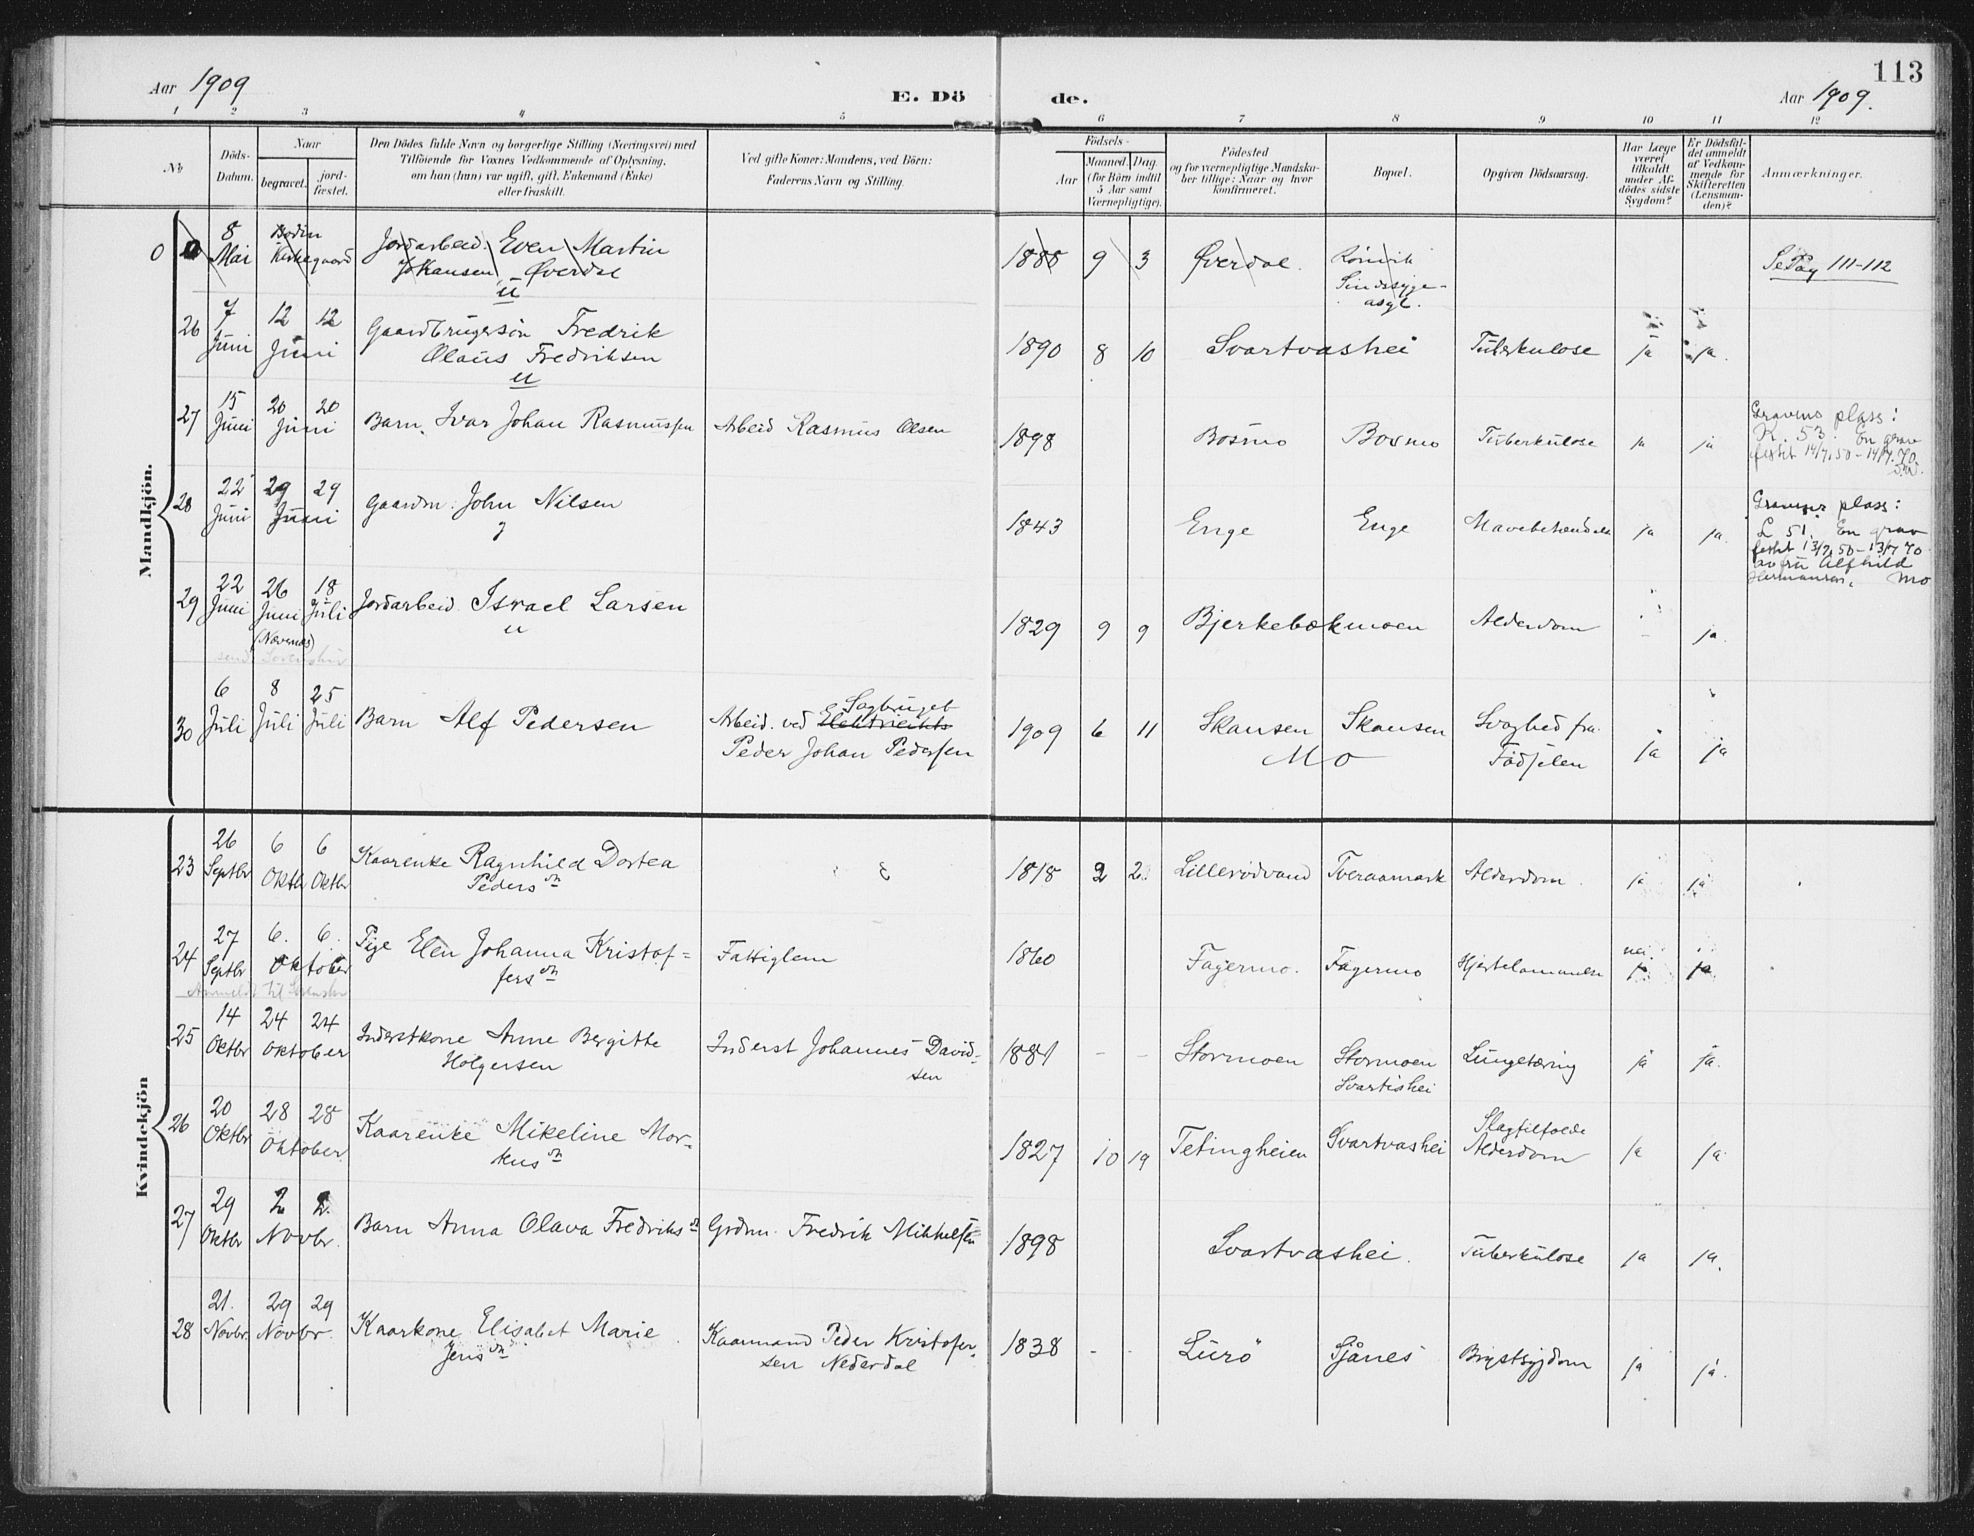 Aar 1909
E. Dö de.
Aar 1909.
113
1 2 3 4 5 6 7 8 9 10 11 12
No
Döds-Datum.
Naar
begravet.
jord-festet.
Den Dödes fulde Navn og borgerlige Stilling (Næringsvei) med
Tilföiende for Voxnes Vedkommende af Oplysning.
om han (hun) var ugift, gift, Enkemand (Enke)
eller fraskilt.
Ved gifte Koner: Mandens, ved Börn:
Faderens Navn og Stilling.
Födsels-
Aar
Maaned. Dag.
(for Börn indtil
5 Aar samt
Værnepligtige).
Födested
og for værnepligtige Mandska-
ber tillige: Naar og hvor
konfirmeret.
Bopæl.
Opgiven Dödsaarsag.
Har Læge
været
tilkaldt
under Af-
dödes sidste
Sygdom?
Er Dödsfal-
det anmeldt
af Vedkom-
mende for
Skifteretten
(Lensman-
den)?
Anmærkninger.
Mandkjön.
0 8 Mai Bodin Kirkegaard Jordarbeid. Even Martin
Johansen Øverdal
u
1888 9 3 Øverdal. Rönvik
Sindssyge-
asyl.
Se Pag 111-112
26 7 Juni 12 12 Juni Gaardbrugersön Fredrik
Olaus Fredriksen
u
1890 8 10 Svartvashei Tuberkulose ja ja.
27 15 Juni 20 20 Juni Barn. Ivar Johan Rasmussen Arbeid Rasmus Olsen 1898 Bosmo Bosmo Tuberkulose ja ja
Gravens plass:
K. 53. En grav
festet 14/7.50-14/7.70
28 22 Juni 29 29 Juni Gaardm. John Nilsen
g
1843 Enge Enge ja ja.
Gravens plass:
L 51. En grav
festet 13/7.50-13/7 70
av fru Alfhild
Hermansen, Mo
29 22 Juni 26 Juni 18 Juli Jordarbeid. Israel Larsen
(Nævernes) u
1829 9 9 Bjerkebækmoen Alderdom - ja.
30 6 Juli 8 Juli 25 Juli Barn Alf Pedersen Sagbruget
Arbeid. ved
Peder Johan Pedersen
1909 6 11 Skansen Skansen Svaghed fra
Mo Födselen ja ja
Kvindekjön
23 26 Septbr 6 Oktbr 6 Oktbr Kaarenke Ragnhild Dortea
Pedersdt
1818 2 2 Lillerödvand Tveraamark Alderdom. ja ja
24 27 Septbr 6. 6. Oktober Pige Elen Johanna Kristof-
fersdt
Anmeldt til
Fattiglem 1860 Fagermo. Fagermo nei. ja ja
25 14 Oktbr 24 24 Oktober Inderstkone Anne Bergitte
Holgersen
Inderst Johannes David-
sen
1881 - - Stormoen Stormoen
Svartishei
Lungetæring ja ja.
26 20 Oktbr 28 28 Oktober Kaarenke Mikeline Mor-
kusdt
1827 10 19 Tetingheien Svartvashei Slagtilfælde
Alderdom ja ja
27 29 Oktbr 2 2. Novbr. Barn Anna Olava Fredriksdt Grdm. Fredrik Mikkelsen 1898 Svartvashei. Tuberkulose ja ja.
28 21. Novbr. 29 29 Novbr. Kaarkone Elisabet Marie
Jensdt
Kaarmand Peder Kristofer-
sen Nederdal
1838 - - Lurö Sjånes Brystsygdom ja ja.